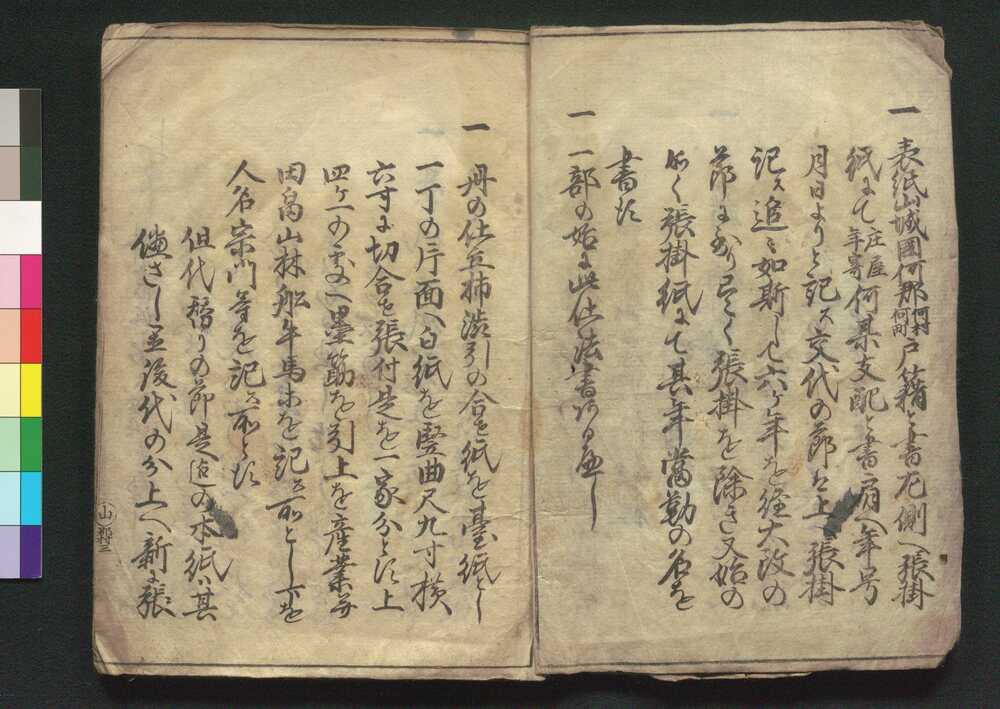 一 表紙山城國何郡何村何町戸籍と書左側へ張掛
紙にて庄屋年寄何某支配と書肩へ年号
月日よりと記ス交代の節は上へ張掛
記ス追々如斯して六ケ年を経大改の
節に至り尽く張掛を除き又始の
如く張掛紙にて其年當勤の名を
書す
一 一部の始に此仕法書
一 丹の仕立柿渋引の合せ紙を臺紙とし
一丁の片面へ白紙を竪曲尺九寸横
六寸に切合せ張付是を一家分とす上
四ケ一の処へ墨筋を引上を産業並
田畠山林船牛馬等を記ス所とし下を
人名宗門等を記ス所とす
但代替りの節是迄の本紙ハ其
儘さし置後代の分上へ新に張
(山)郡村三